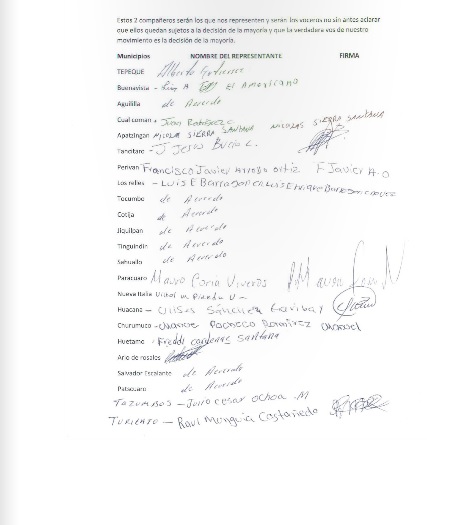 Estos 2 compañeros serán los que nos representen y serán los voceros no sin antes aclarar
que ellos quedan sujetos a la decisión de la mayoría y que la verdadera vos de nuestro
movimiento es la decisión de la mayoría.
Municipios NOMBRE DEL REPRESENTANTE FIRMA
TEPEQUE Alberto Gutierrez
Buenavista - Luis A El Americano
Aguililla de Acuerdo
Cualcoman Juan C.
Apatzingan NICOLAS SIERRA SANTANA NICOLAS SIERRA SANTANA
Tancitaro - J Jesus Bucio C.
Perivan Francisco Javier Arroyo Ortiz F Javier A-O
Los relles - Luis E
Tocumbo de Acuerdo
Cotija de Acuerdo
Jiquilpan de Acuerdo
Tinguindin de Acuerdo
Sahuallo de Acuerdo
Paracuaro Mauro Coria Viveros
Nueva Italia
Huacana - Ulises Sánchez Garibay
Churumuco - Pacheco Ramirez
Huetamo - Freddi cardenas Santana
Ario de rosales
Salvador Escalante de Acuerdo
Patscuaro de Acuerdo
TAZUMBOS - Julio cesar Ochoa .M
TURICATO - Raul Munguia Castañeda